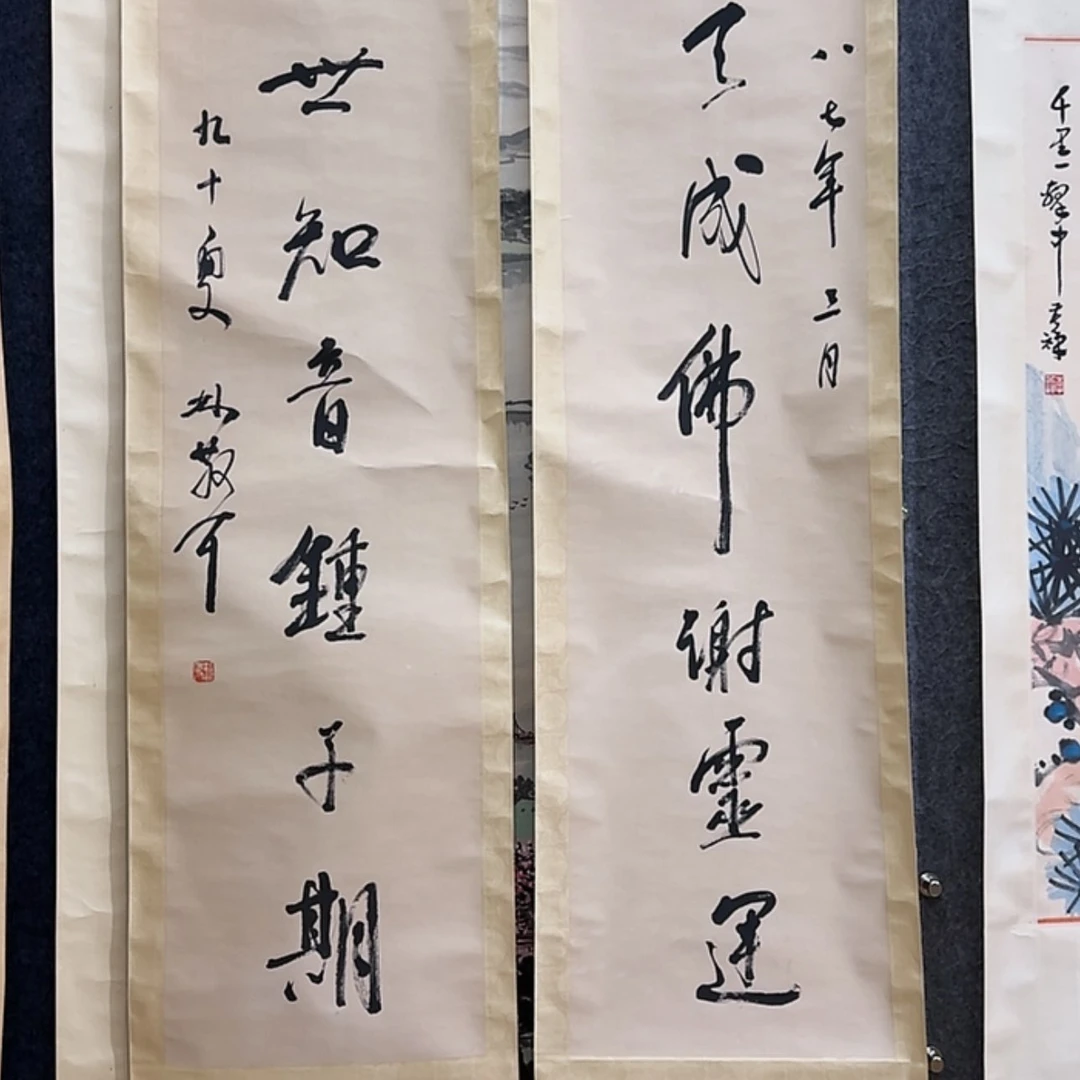 千里一擊中
八七年三月
天成佛谢靈運
世知音鍾子期
九十叟 林散耳